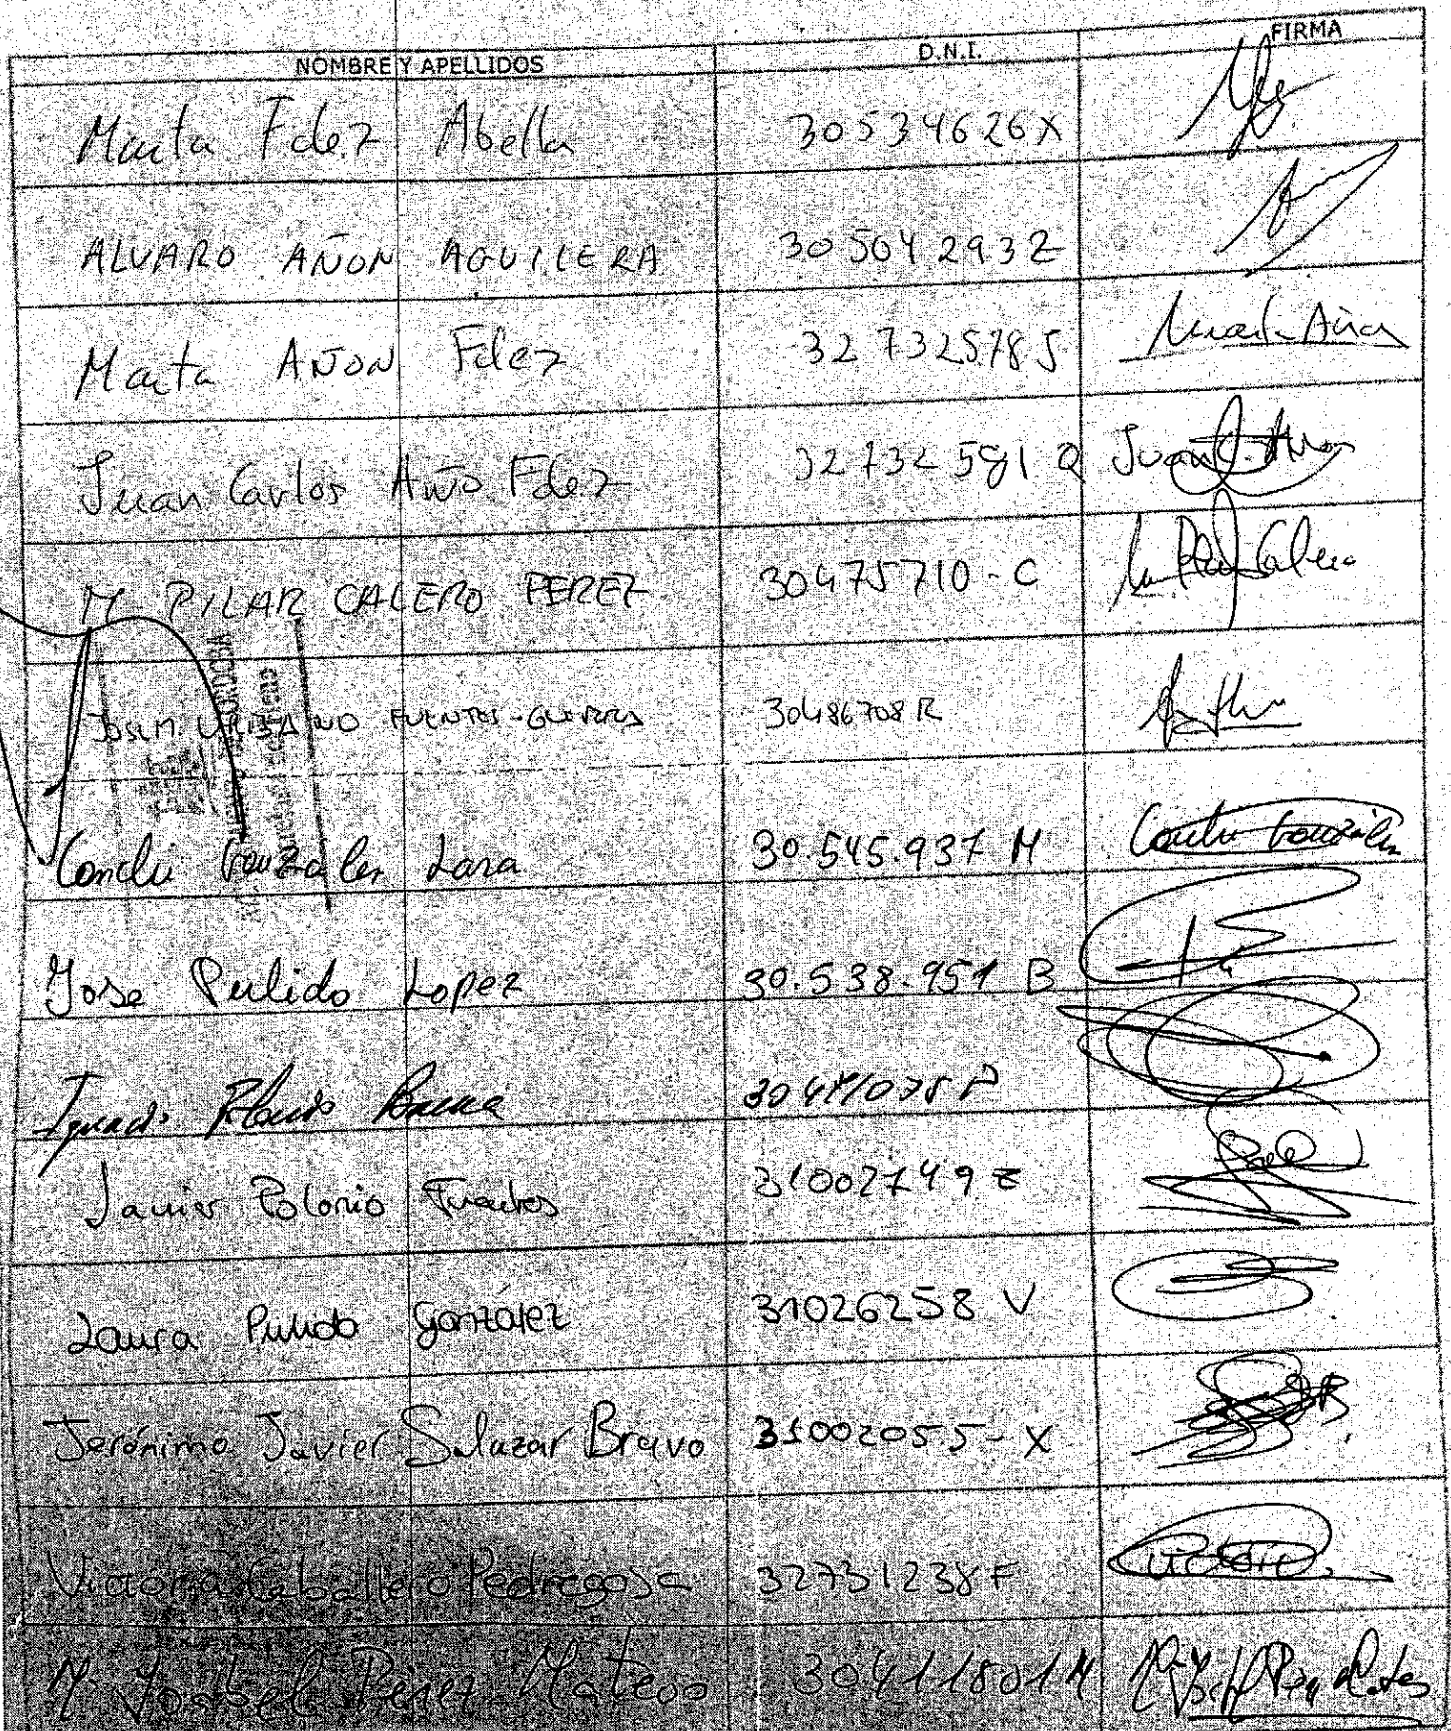 NOMBRE Y APELLIDOS D.N.I. FIRMA
Marta Fdez Abella 30534626X
ALVARO AÑON AGUILERA 30504293Z
Marta AÑON Fdez 32732578J Marta Añon
Juan Carlos Año Fdez 32732581Q Juan C. Añon
Mª PILAR CALERO PEREZ 30475710-C Mª Pilar Calero
Jose M. URBANO FUENTES-GUERRA 30486708R
Conchi González Lara 30.545.937 M Conchi González
Jose Pulido Lopez 30.538.951 B
Ignacio
Javier Polonio Fuentes 31002749Z
Laura Pulido González 31026258 V
Jerónimo Javier Salazar Bravo 31002055-X
Victoria Caballero Pedregosa 32731238F Victoria
Mª Isabel Pérez Mateos